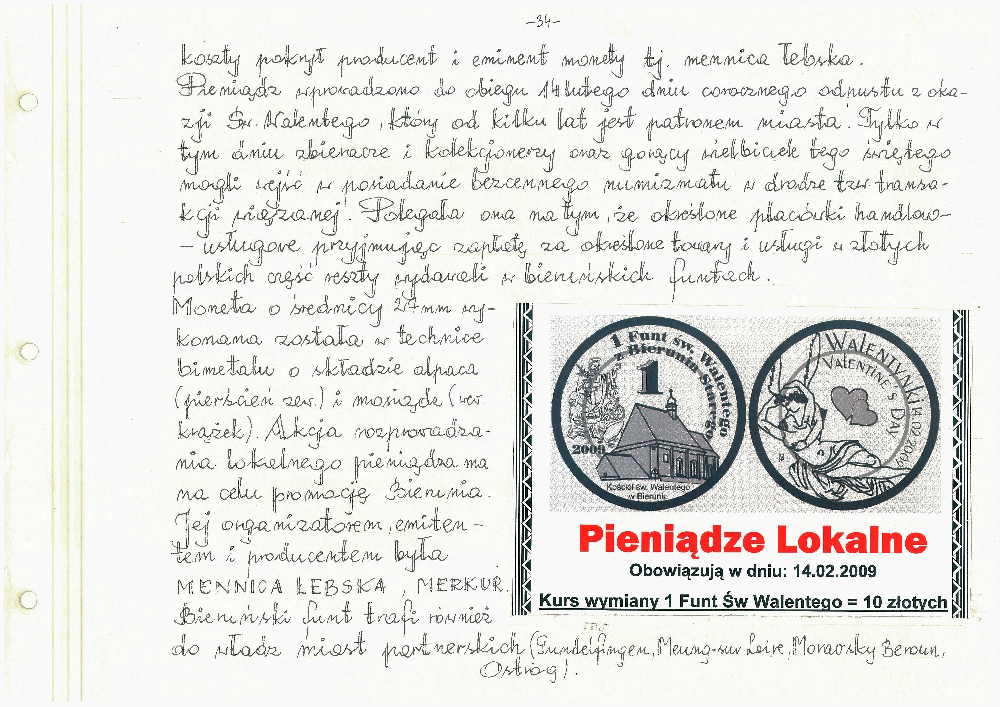 -34-
koszty pokrył producent i eminent monety tj. mennica Łebska.
Pieniądz wprowadzono do obiegu 14 lutego dniu corocznego odpustu z oka-
zji Św. Walentego, który od kilku lat jest patronem miasta. Tylko w
tym dniu zbieracze i kolekcjonerzy oraz gorący wielbiciele tego świętego
mogli wejść w posiadanie bezcennego numizmatu w drodze tzw. transa-
kcji wiązanej! Polegała ona na tym, że określone placówki handlowo-
- usługowe przyjmując zapłatę za określone towary i usługi w złotych
polskich część reszty wydawali w bieruńskich funtach.
Moneta o średnicy 27mm wy-
konana została w technice
bimetalu o składzie alpaca
(pierścień zew.) i mosiądz (wew.
krążek). Akcja rozprowadza-
nia lokalnego pieniądza ma
na celu promocję Bierunia.
Jej organizatorem, emiten-
tem i producentem była
MENNICA ŁEBSKA, MERKUR.
Bieruński funt trafi również
do władz miast partnerskich (Gundelfingen, Meung-sur Loire, Moravsky Beroun,
Ostróg).
1 Funt św. Walentego
z Bierunia Starego
1
2009
Kościół św. Walentego
w Bieruniu
WALENTYNKI 14.02.2009
VALENTINE'S DAY
Pieniądze Lokalne
Obowiązują w dniu: 14.02.2009
Kurs wymiany 1 Funt Św Walentego = 10 złotych